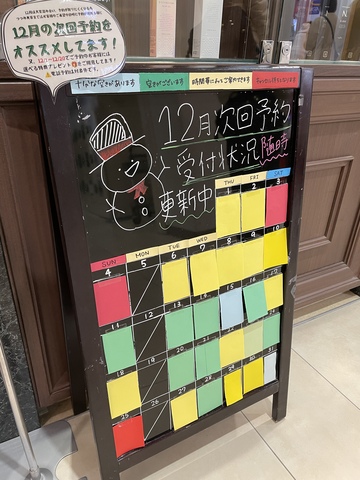 12月の次回予約を
オススメしてます!
十分な空きがあります
空きがございます
時間帯によってご案内できます
12月次回予約
受付状況随時
更新中
THU FRI SAT
1 2 3
SUN MON TUE WED
4 5 6 7 8 9 10
11 12 13 14 15 16 17
18 19 20 21 22 23 24
25 26 27 28 29 30 31